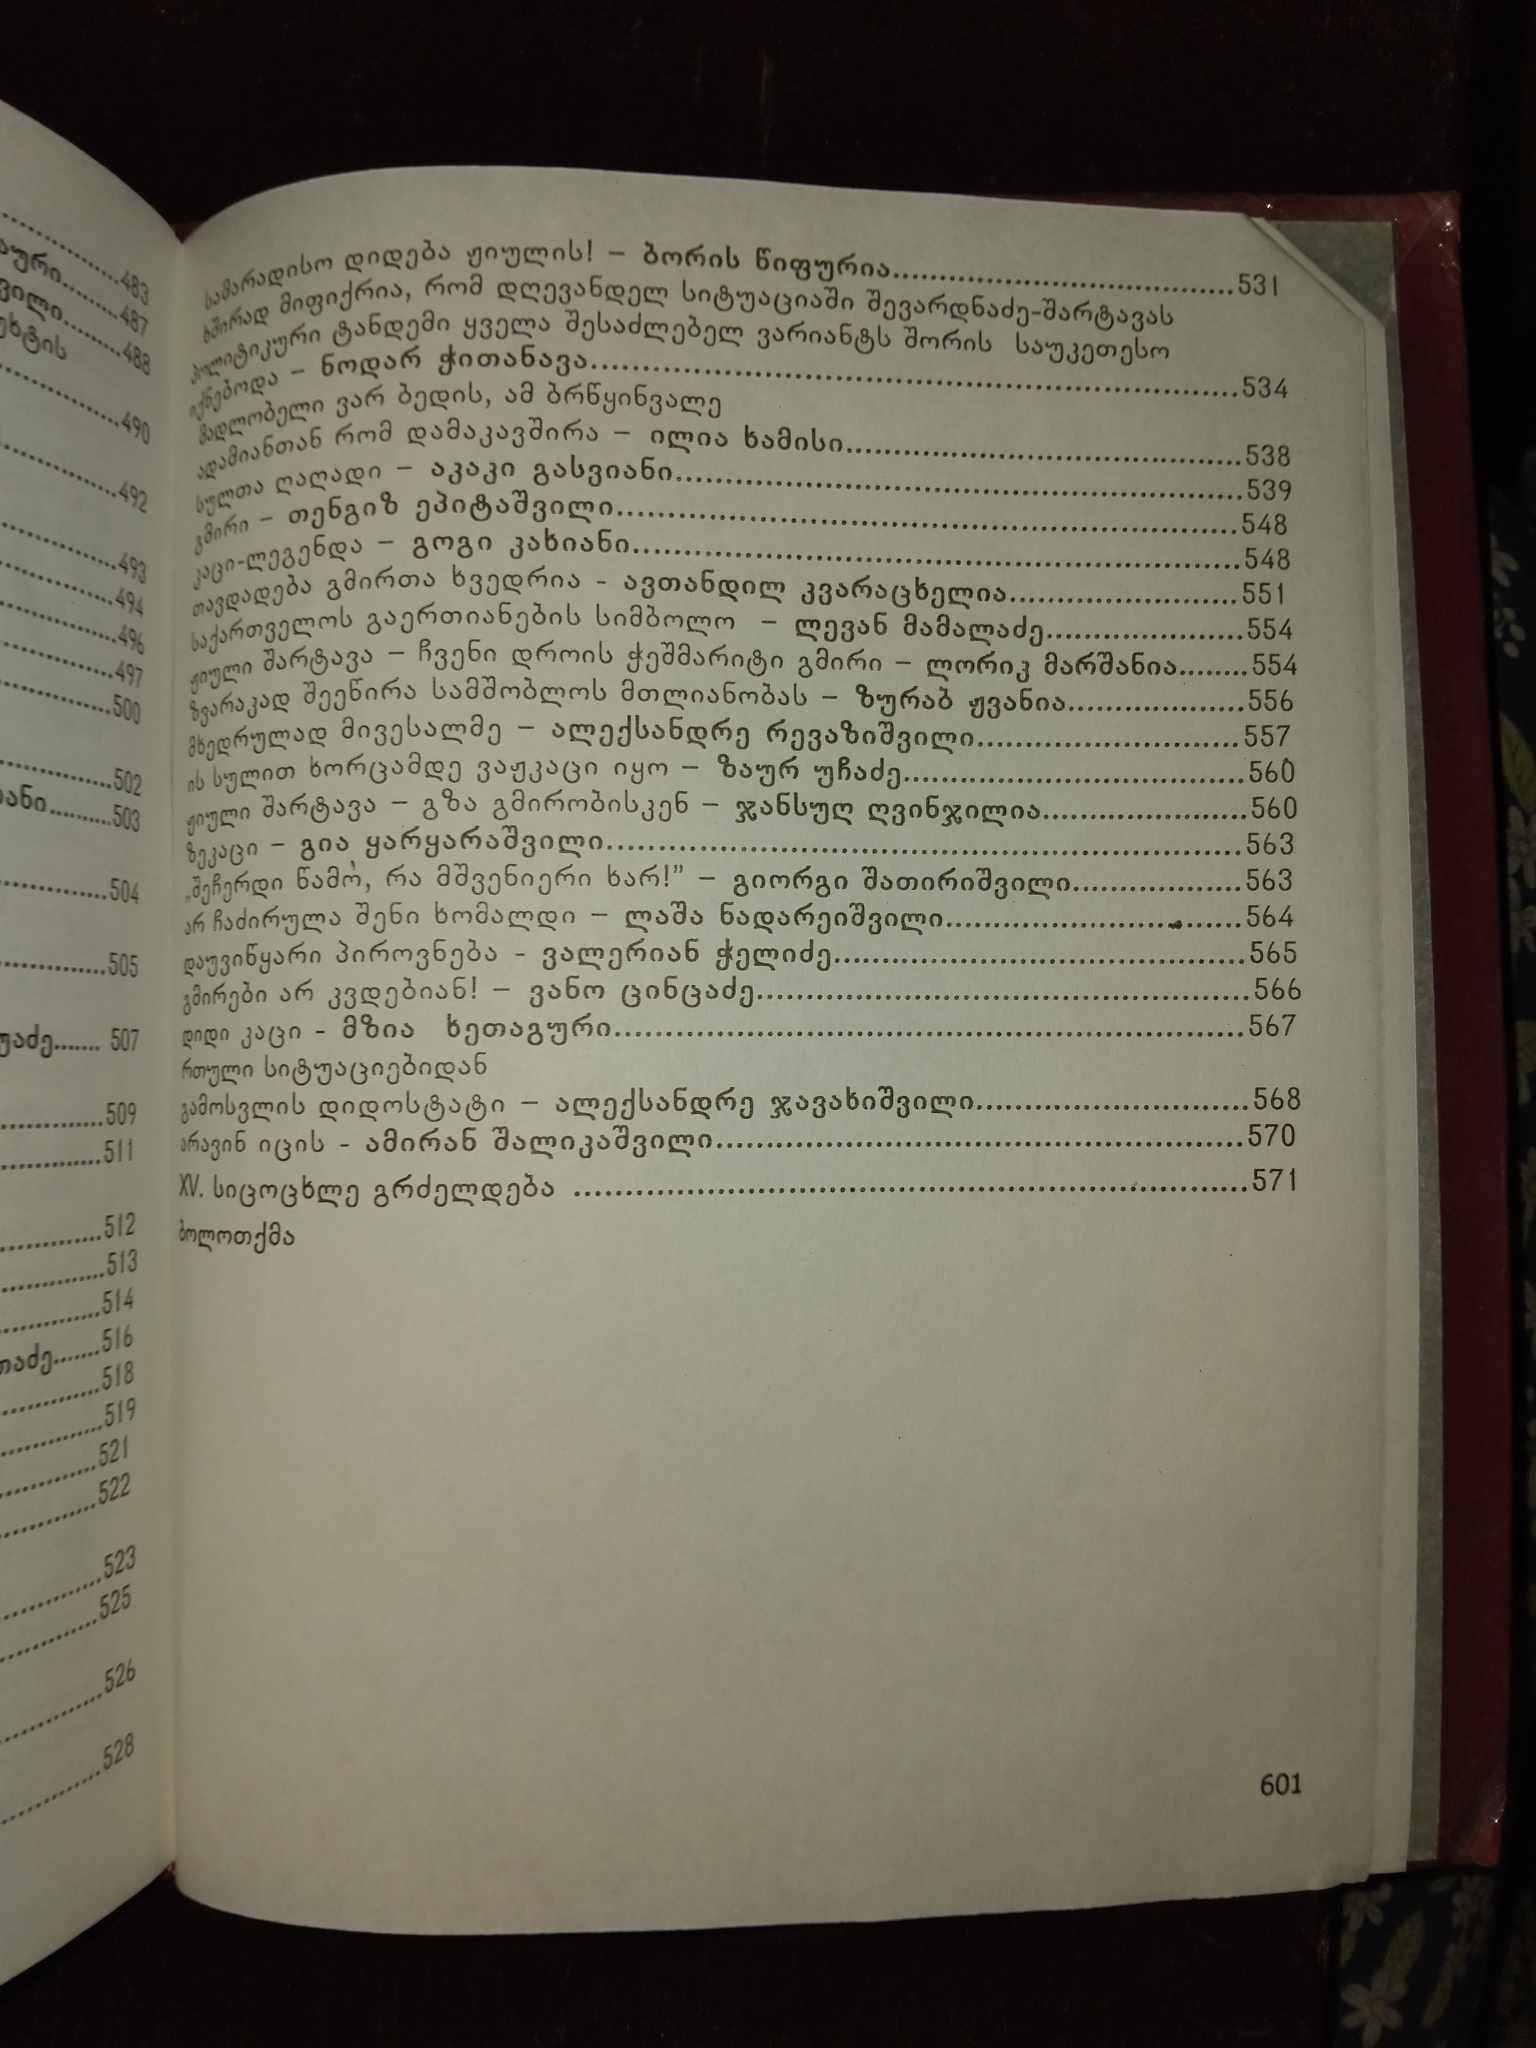 483
აური.......487
ვილი.......488
ეხტის
490
492
493
494
496
497
500
502
იანი..........503
504
505
უაძე....... 507
509
511
512
513
514
516
თაძე.......
518
519
521
522
523
525
526
528
სამარადისო დიდება ჟიულის! – ბორის წიფურია.....................................531
ხშირად მიფიქრია, რომ დღევანდელ სიტუაციაში შევარდნაძე-შარტავას
პოლიტიკური ტანდემი ყველა შესაძლებელ ვარიანტს შორის საუკეთესო
იქნებოდა – ნოდარ ჭითანავა.....................................................................534
მადლობელი ვარ ბედის, ამ ბრწყინვალე
ადამიანთან რომ დამაკავშირა – ილია ხამისი...........................................538
სულთა ღაღადი – აკაკი გასვიანი..............................................................539
გმირი – თენგიზ ეპიტაშვილი....................................................................548
კაცი-ლეგენდა – გოგი კახიანი..................................................................548
თავდადება გმირთა ხვედრია - ავთანდილ კვარაცხელია.........................551
საქართველოს გაერთიანების სიმბოლო – ლევან მამალაძე.....................554
ჟიული შარტავა – ჩვენი დროის ჭეშმარიტი გმირი – ლორიკ მარშანია........554
ზვარაკად შეეწირა სამშობლოს მთლიანობას – ზურაბ ჟვანია...................556
მხედრულად მივესალმე – ალექსანდრე რევაზიშვილი............................557
ის სულით ხორცამდე ვაჟკაცი იყო – ზაურ უჩაძე.....................................560
ჟიული შარტავა – გზა გმირობისკენ – ჯანსუღ ღვინჯილია......................560
ზეკაცი – გია ყარყარაშვილი.....................................................................563
„შეჩერდი წამო, რა მშვენიერი ხარ!” – გიორგი შათირიშვილი..................563
არ ჩაძირულა შენი ხომალდი – ლაშა ნადარეიშვილი................................564
დაუვიწყარი პიროვნება - ვალერიან ჭელიძე............................................565
გმირები არ კვდებიან! – ვანო ცინცაძე.....................................................566
დიდი კაცი - მზია ხეთაგური...................................................................567
რთული სიტუაციებიდან
გამოსვლის დიდოსტატი – ალექსანდრე ჯავახიშვილი.............................568
არავინ იცის - ამირან შალიკაშვილი.........................................................570
XV. სიცოცხლე გრძელდება ........................................................................571
ბოლოთქმა
601